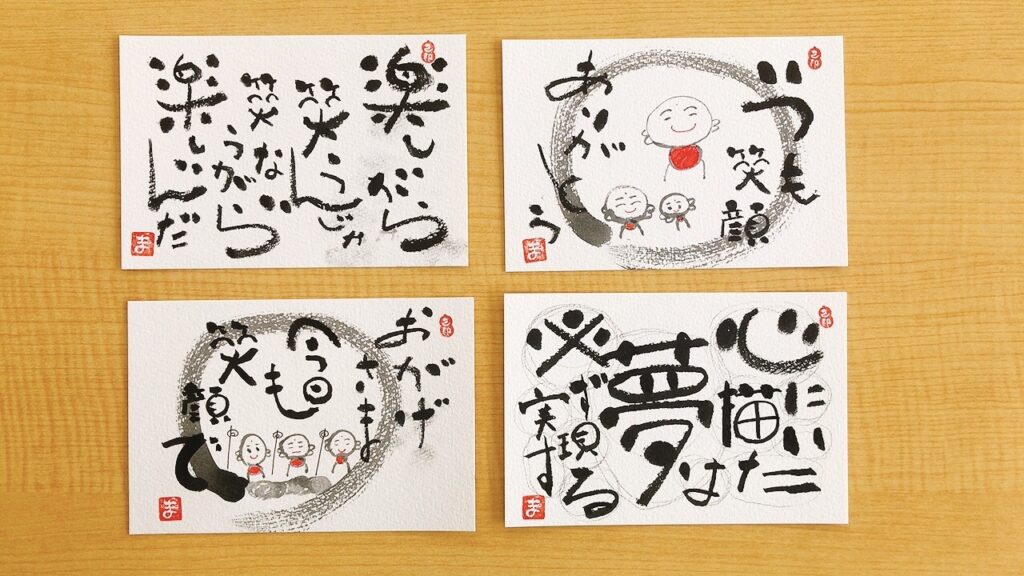 楽しいから
笑うんじゃ
ない
笑うから
楽しいんだ
ま
いつも
笑顔
ありがとう
ま
おかげ
さま
今日も
笑顔で
ま
心に
描いた
夢は
必ず
実現
する
ま